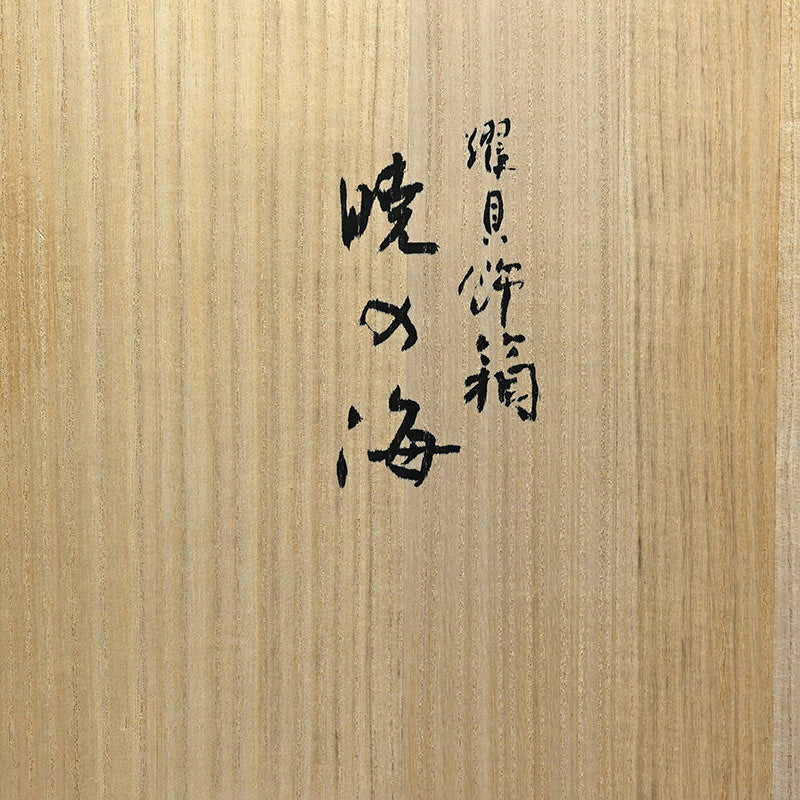 耀貝飾箱
暁の海